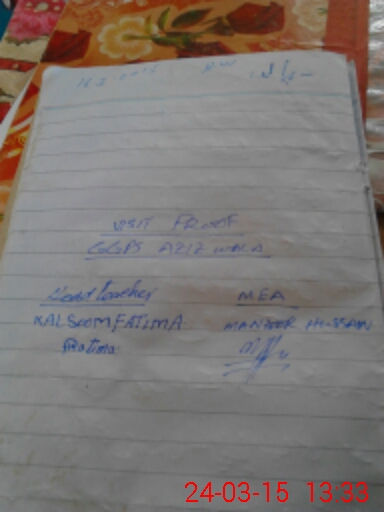 H.W
VISIT PROOF
GGPS AZIZ WALA
Head teacher MEA
KALSOOM FATIMA MANZOOR HUSSAIN
Fatima
24-03-15 13:33